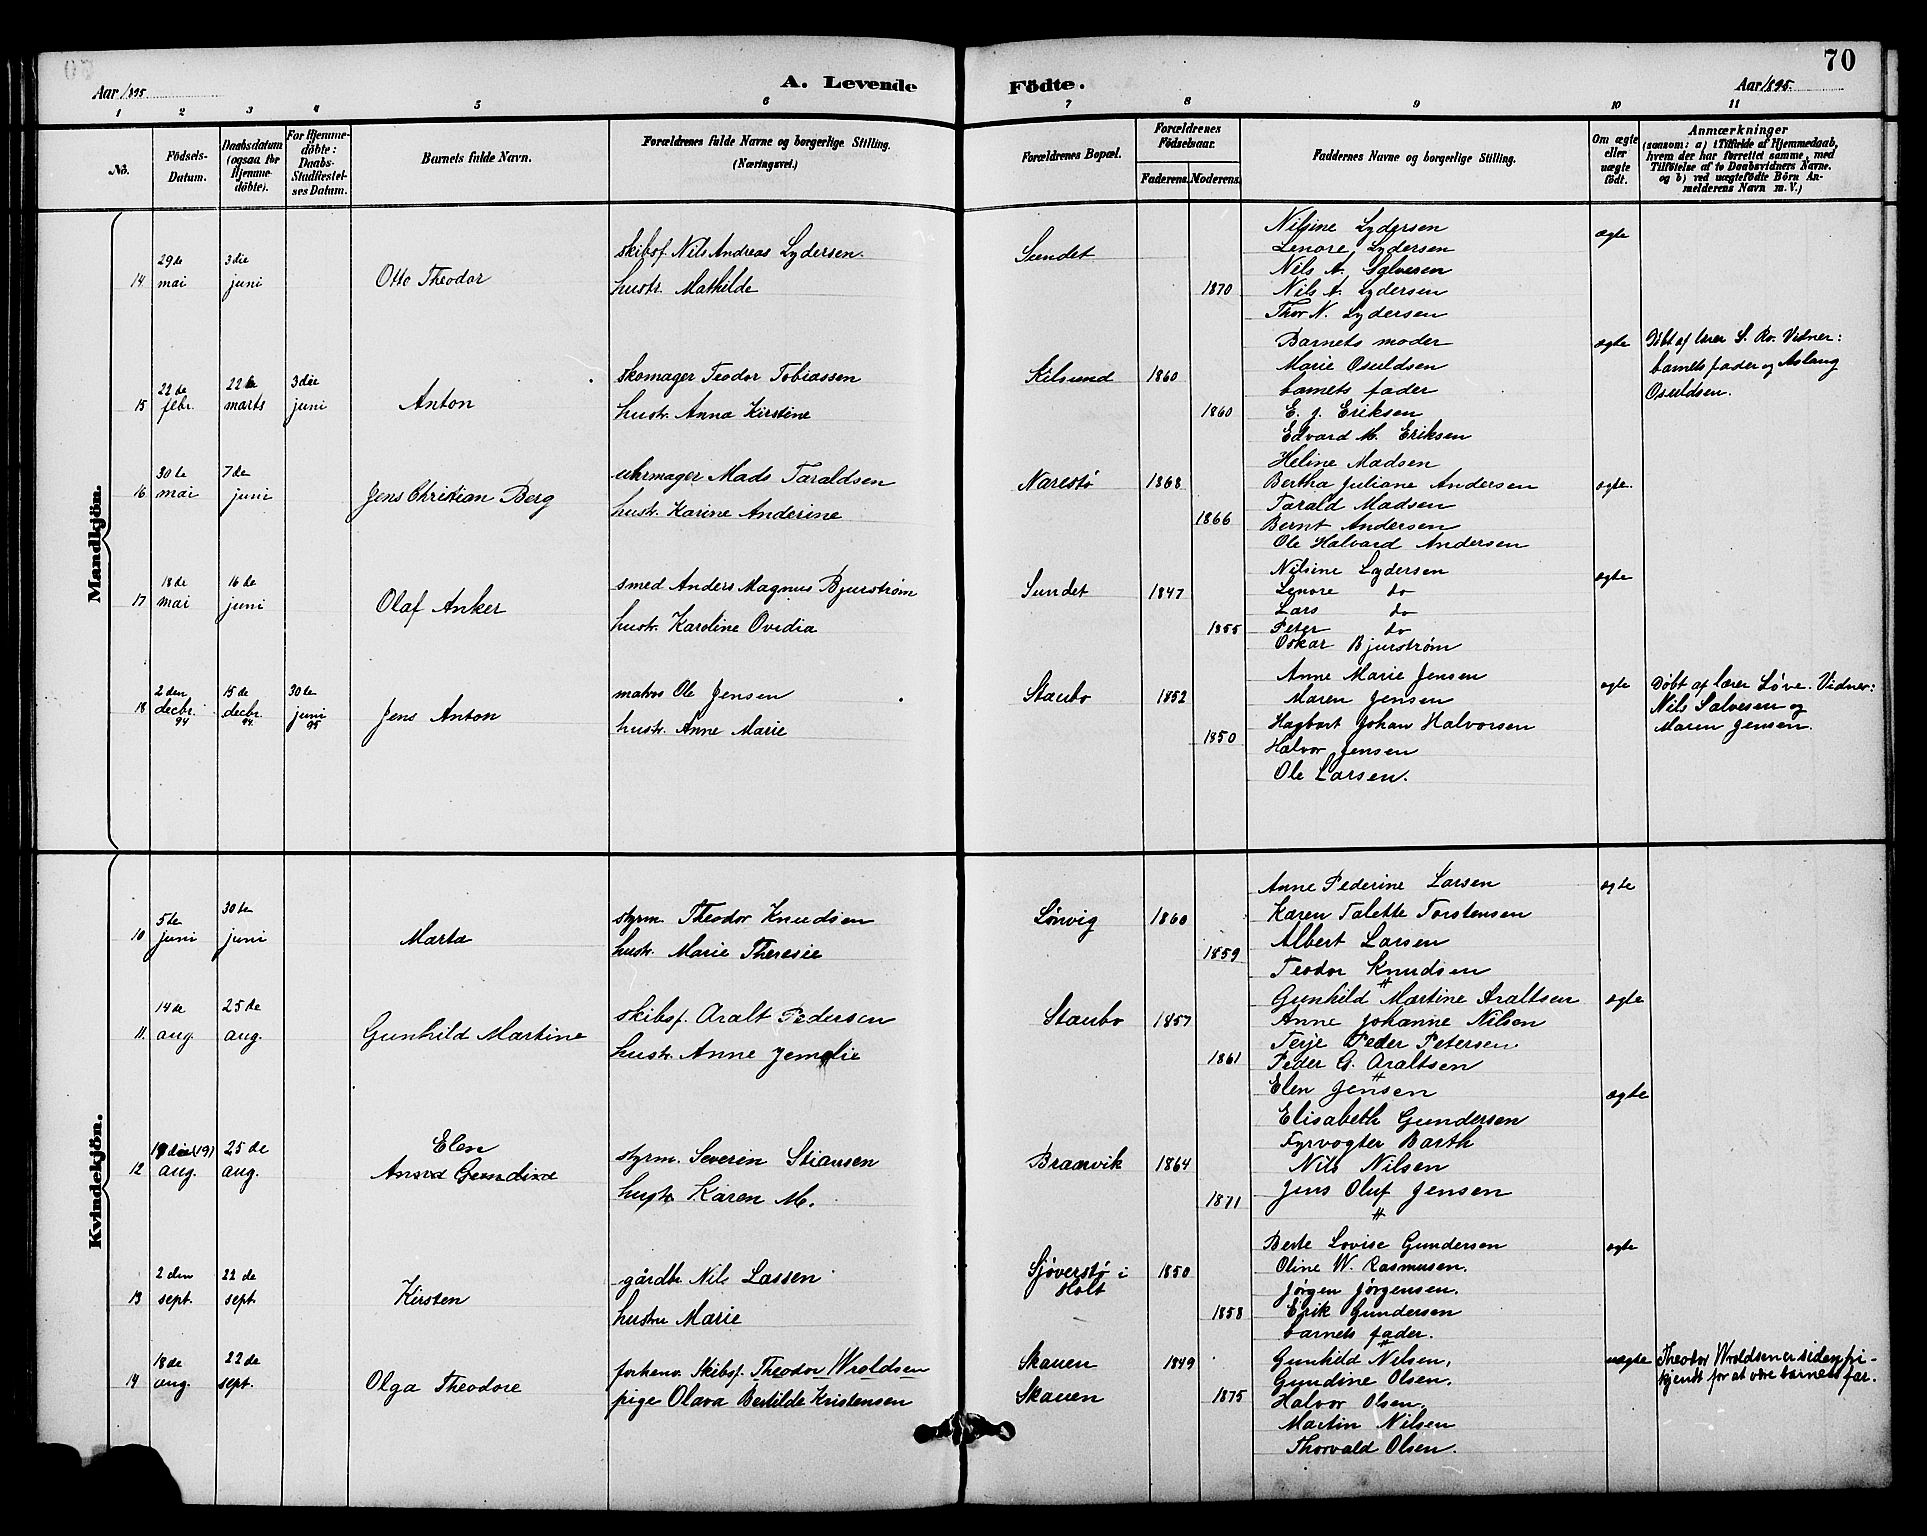 70
Aar 1895.
A. Levende Födte.
Aar 1895.
1 2 3 4 5 6 7 8 9 10 11
No.
Födsels-Datum.
Daabsdatum (ogsaa for Hjemme-döbte).
For Hjemme-döbte: Daabs-Stadfæstel-ses Datum.
Barnets fulde Navn.
Forældrenes fulde Navne og borgerlige Stilling.
(Næringsvei.)
Forældrenes Bopæl.
Forældrenes Födselsaar.
Faderens. Moderens.
Faddernes Navne og borgerlige Stilling.
Om ægte eller uægte födt.
Anmærkninger
(saasom: a) i Tilfælde af Hjemmedaab, hvem der har forrettet samme, med Tilföielse af to Daabsvidners Navne. og b) ved uægtefödte Börn An-melderens Navn m. V.)
Mandkjön.
14 29de mai 3die juni Otto Theodor
skibsf. Nils Andreas Lydersen.
hustr. Mathilde
Sundet 1870
Nilsine Lydersen
Lenore Lydersen
Nils A. Salvesen
Nils A. Lydersen
Thor N. Lydersen
ægte
15 22de febr. 22de marts 3die juni Anton
skomager Teodor Tobiassen
hustr. Anna Kirstine
Kilsund 1860 1860
Barnets moder
Marie Osuldsen
barnets fader
E. J. Eriksen
Edvard M. Eriksen
ægte
Döbt af lærer S. Ro. Vidner:
barnets fader og Aslaug
Osuldsen.
16 30te mai 7de juni Jens Christian Berg
uhrmager Mads Taraldsen
hustr. Karine Anderine
Narestø 1868 1866
Heline Madsen
Bertha Juliane Andersen
Tarald Madsen
Bernt Andersen
Ole Halvard Andersen
ægte.
17 18de mai 16de juni Olaf Anker
smed Anders Magnus Bjurstrøm
hustr. Karoline Ovidia
Sundet 1847 1855
Nilsine Lydersen
Lenore do
Lars do
Peter do
Oskar Bjurstrøm
ægte
18 2den decbr. 94 15de decbr. 94. 30te juni 95 Jens Anton
matros Ole Jensen
hustr. Anne Marie
Staubo 1852 1850
Anne Marie Jensen
Maren Jensen
Hagbart Johan Halvorsen
Halvor Jensen
Ole Larsen.
ægte
Döbt af lærer Løve. Vidner:
Nils Salvesen og
Maren Jensen.
Kvindekjön.
10 5te juni 30te juni Marta
styrm. Theodor Knudsen
hustr. Marie Theresie
Lønvig 1860 1859
Anne Pederine Larsen
Karen Talette Torstensen
Albert Larsen
Teodor Knudsen
ægte
11. 14de aug. 25de aug. Gunhild Martine
skibsf. Aralt Pedersen
hustr. Anne Jemelie
Staubo 1857 1861
Gunhild Martine Araltsen
Anne Johanne Nilsen
Terje Peder Petersen
Peder G. Araltsen
ægte
12 (19) aug. 25de aug. Elen
Gundine
styrm. Severin Stiansen
hustr. Karen M.
Braarvik 1864 1871
Elen Jensen
Elisabeth Gundersen
Fyrvogter Barth
Nils Nilsen
Jens Oluf Jensen
ægte
13 2den sept. 22de sept. Kirsten
gårdbr. Nils Lassen
hustru Marie
Sjøverstø i Holt 1850 1858
Berte Lovise Gundersen
Oline W. Rasmusen.
Jørgen Jørgensen.
Erik Gundersen
barnets fader.
ægte
14 18de aug. 22de sept. Olga Theodore
forhenv. Skibsf. Theodor Wroldsen
pige Olava Bertilde Kristensen
Skauen 1849
Skauen 1875
Gunhild Nilsen.
Gundine Olsen.
Halvor Olsen.
Martin Nilsen
Thorvald Olsen.
uægte
Theodor Wroldsen er siden fri-
kjendt for at være barnets far.